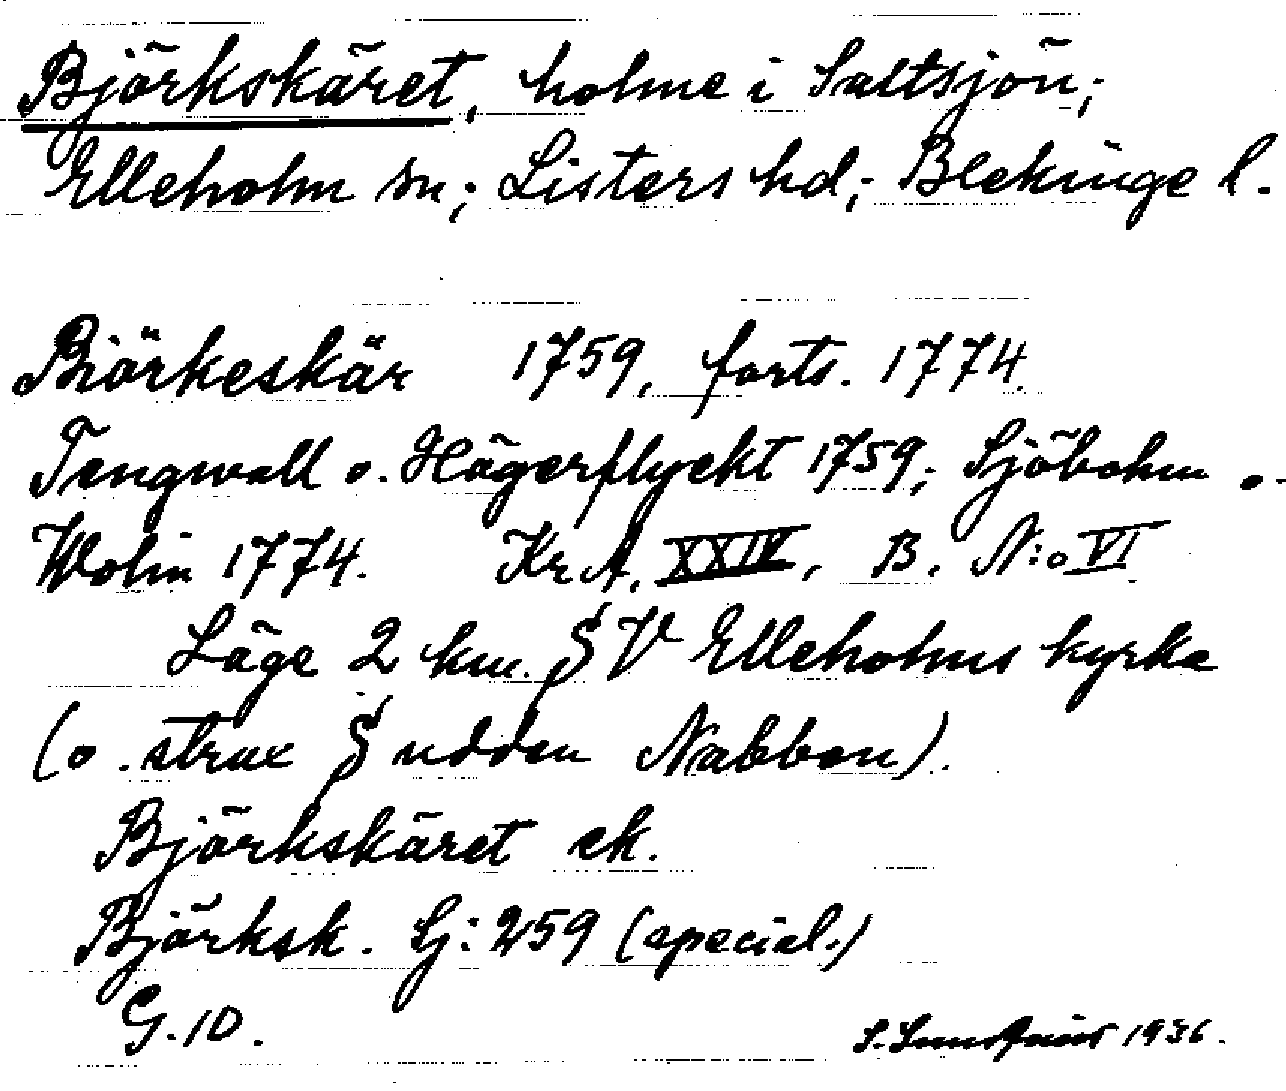 Björkskäret, holme i Saltsjön;
Elleholm sn; Listers hd; Blekinge l.
Biörkeskär 1759, forts. 1774.
Tengwall o. Hägerflyckt 1759; Sjöbohm o.
Wolin 1774. Kr A, XXIV, B, N:o VI
Läge 2 km. S V Elleholms kyrka
(o. strax S udden Nabben).
Björkskäret ek.
Björksk. Sj: 259 (special.)
G. 10.
1936.